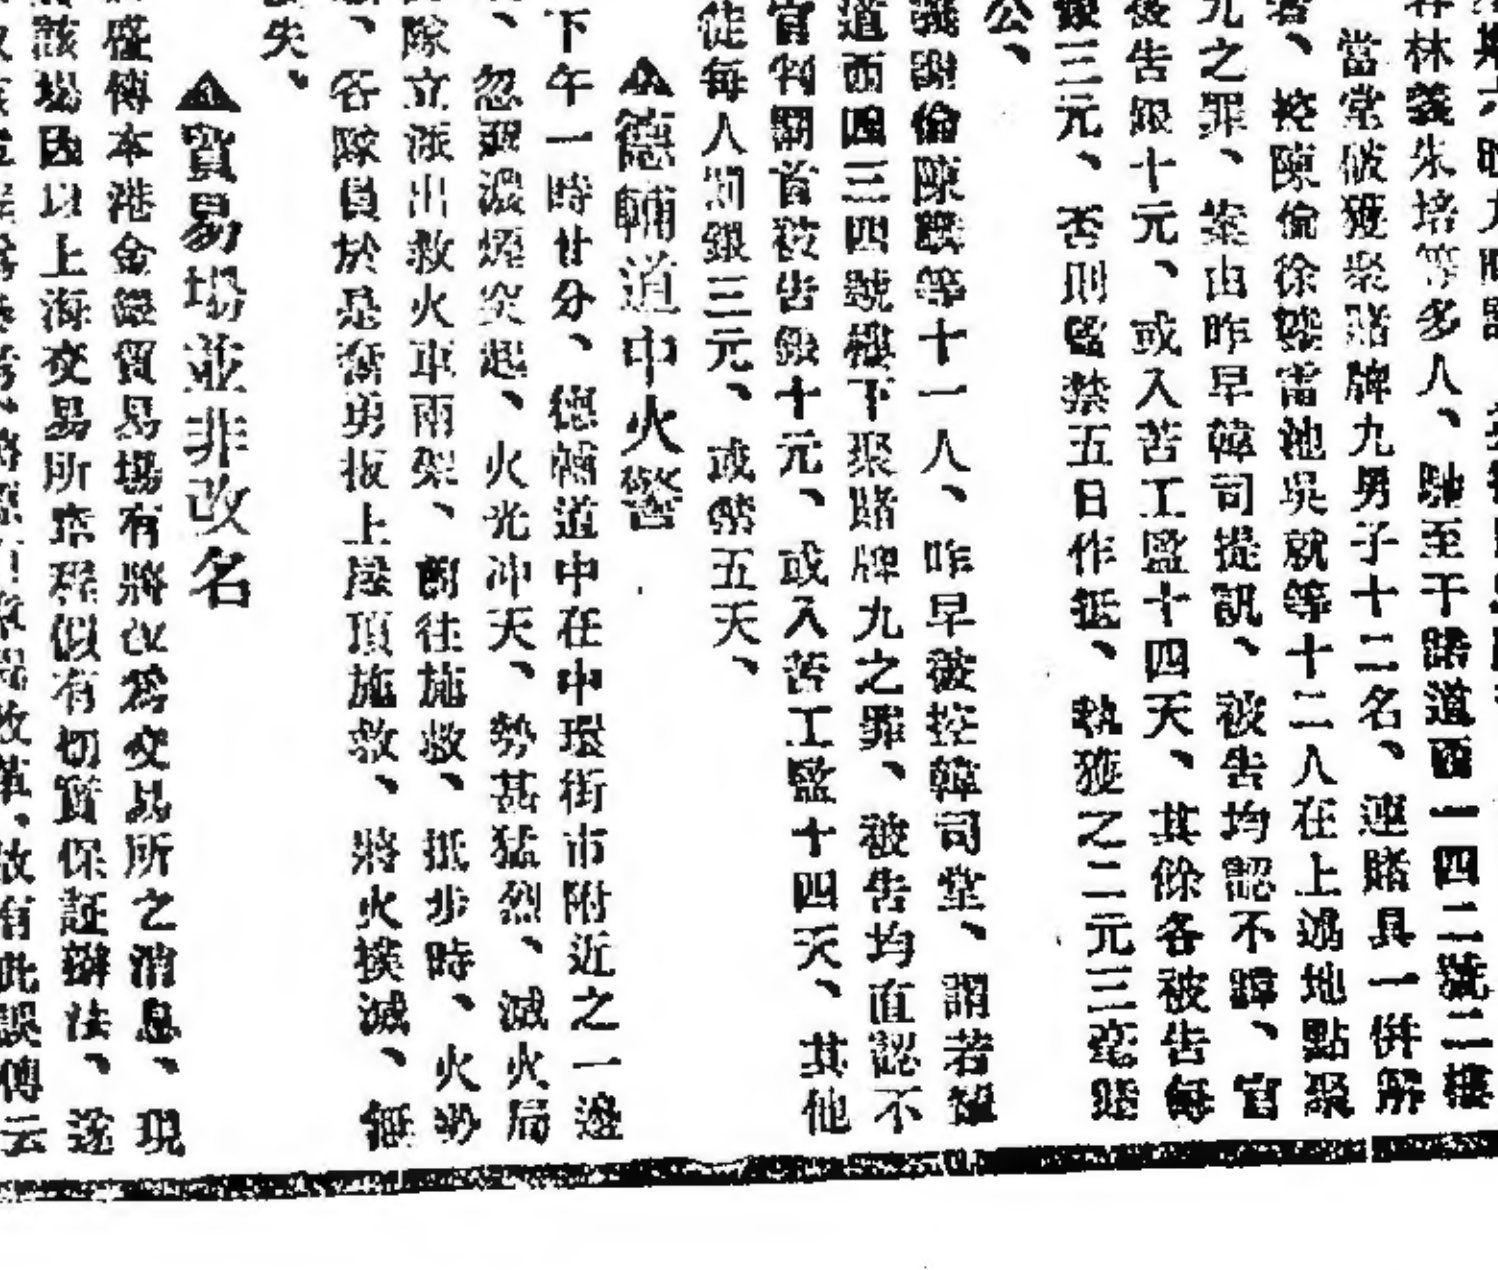 林義朱培等多人、馳至干諾道西一四二號二樓
當堂破獲聚賭牌九男子十二名、連賭具一併解
控陳倫徐 雷池吳就等十二人在上鴻地點聚
九之罪、案由昨早韓司提訊、被告均認不諱、官
後告銀十元、或入苦工監十四天、其餘各被告每
銀三元、否則監禁五日作抵、執獲之二元三毫
公、
義謝倫陳 等十一人、昨早被控韓司堂、謂若輩
道西四三四號樓下聚賭牌九之罪、被告均直認不
官判罰首被告銀十元、或入苦工監十四天、其他
徒每人罰銀三元、或禁五天、
▲德輔道中火警
下午一時廿分、德輔道中在中環街市附近之一邊
、忽現濃煙突起、火光冲天、勢甚猛烈、滅火局
隊立派出救火車兩架、前往施救、抵步時、火勢
、各隊員於是奮勇扳上屋頂施救、將火撲滅、無
失、
▲貿易場並非改名
盛傳本港金銀貿易場有將改為交易所之消息、現
該場因以上海交易所章程似有切實保証辦法、遂
改革、故有此誤傳云